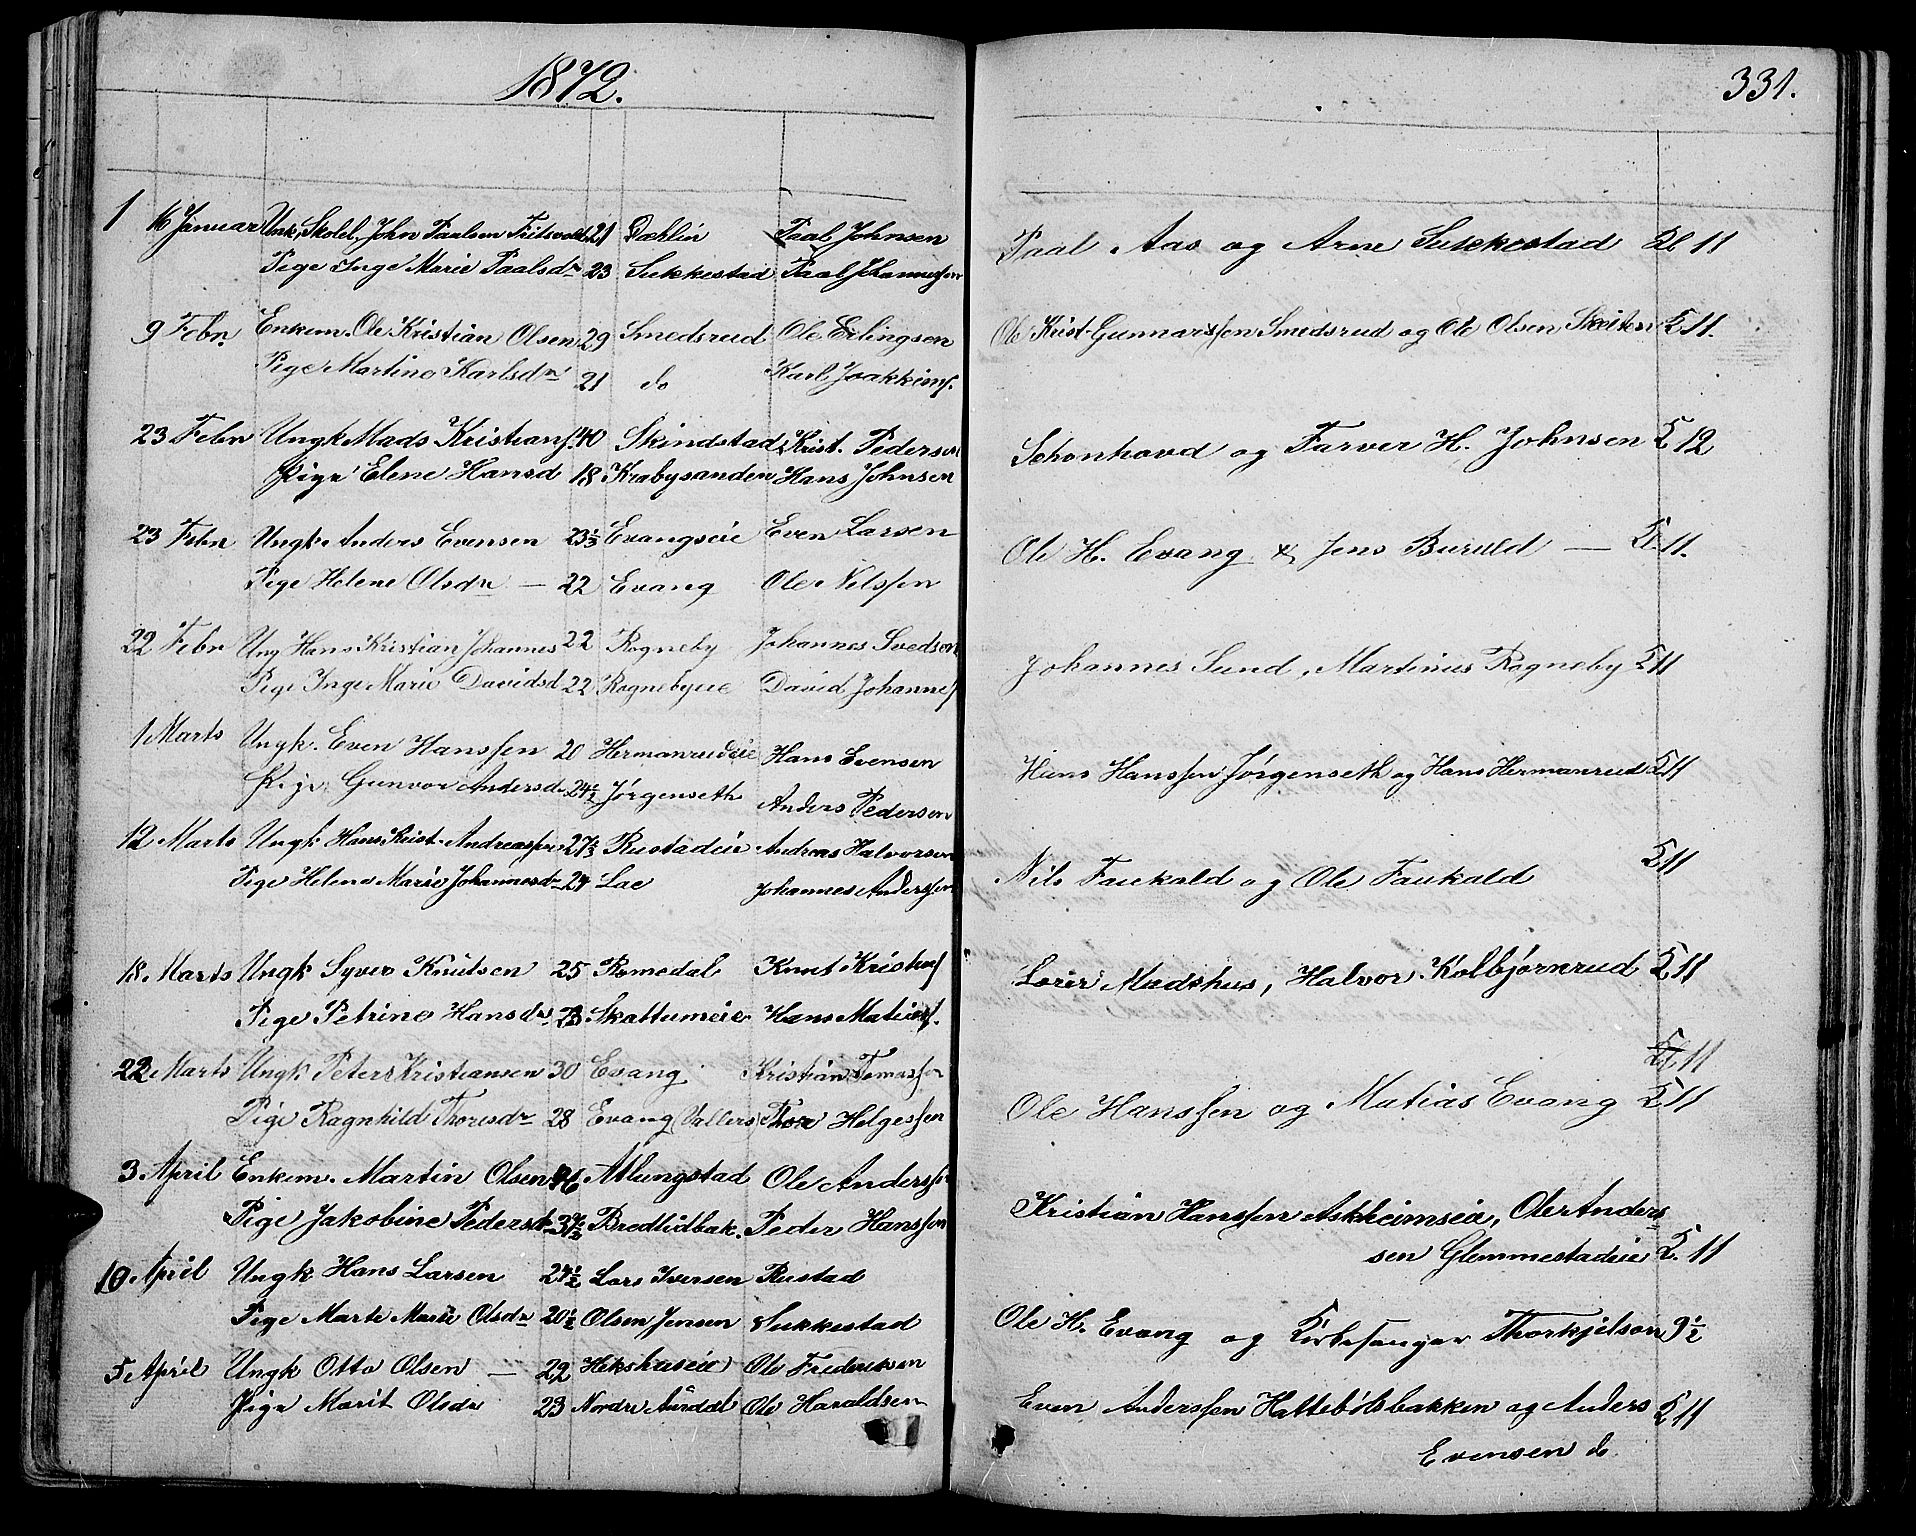 1872.
331.
1 16 Januar Unk, Skolel, John Paalsen 21 Dæhlin Paal Johnsen Paal Aas og Arne Sukkestad Kl 11
Pige Inge Marie Paalsdr 23 Sukkestad Paal Johannessen
9 Febr. Enkem. Ole Kristian Olsen 29 Smedsrud Ole Erlingsen Ole Krist. Gunnarssen Smedsrud og Ole Olsen Skeiten K 11.
Pige Martine Karlsdr 21 do Karl Joakkims.
23 Febr Ungk Mads Kristians. 40 Skindstad Krist. Pedersen Schonhovd og Farver H. Johnsen K 12
Pige Elene Hansd 18 Krabysanden Hans Johnsen
23 Febr Ungk. Anders Evensen 23½ Evangseie Even Larsen Ole H. Evang & Jens Baruld — Kl 11.
Pige Helene Olsdr — 22 Evang Ole Nilssen
22 Febr Ung Hans Kristian Johannes 22 Rogneby Johannes Svedsen Johannes Sund, Martinus Rogneby K 11
Pige Inge Marie Davidsd 22 Rognebyeie David Johannes
1 Marts Ungk. Even Hanssen 20 Hermanrudeie Hans Evensen Hans Hanssen Jörgenseth og Hans Hermanrud K 11
Pige Gunvor Andersdr 24½ Jørgenseth Anders Pedersen
12 Marts Ungk Hans Krist. Andreassen 27⅓ Rustadeie Andreas Halvorsen Nils Faukald og Ole Faukald K 11
Pige Helene Marie Johannesdr 24 Lae Johannes Anderssen
18. Marts Ungk Syver Knutsen 25 Ramedal Knut Kristens Madshus, Halvor Kolbjørnrud K 11
Pige Petrine Hansdr 23 Skattumeie Hans Matias.
Kl 11
22 Marts Ungk Peter Kristiansen 30 Evang Kristian Tomassen Ole Hanssen og Matias Evang K 11
Pige Ragnhild Thoresdr 28 Evang (Vallers) Thor Helgessen
3 April Enkem. Martin Olsen 46 Atlungstad Ole Anderssen Kristian Hanssen Askheimseie, Ole Anders-
Pige Jakobine Pedersdr 37½ Bredlidbak. Peder Hanssen sen Glemmestadeie K. 11
10 April Ungk Hans Larsen 24½ Lars Iversen Rustad Ole H. Evang og Kirkesanger Thorkjelson 9½
Pige Marte Marie Olsdr 20½ Olsen Jensen Sukkestad
5 April Ungk Otto Olsen — 22 Hekshuseie Ole Frederiksen Even Anderssen Hattebölsbakken og Anders K 11
Pige Marit Olsdr 23 Nordre Aurdal Ole Haraldsen Evensen do